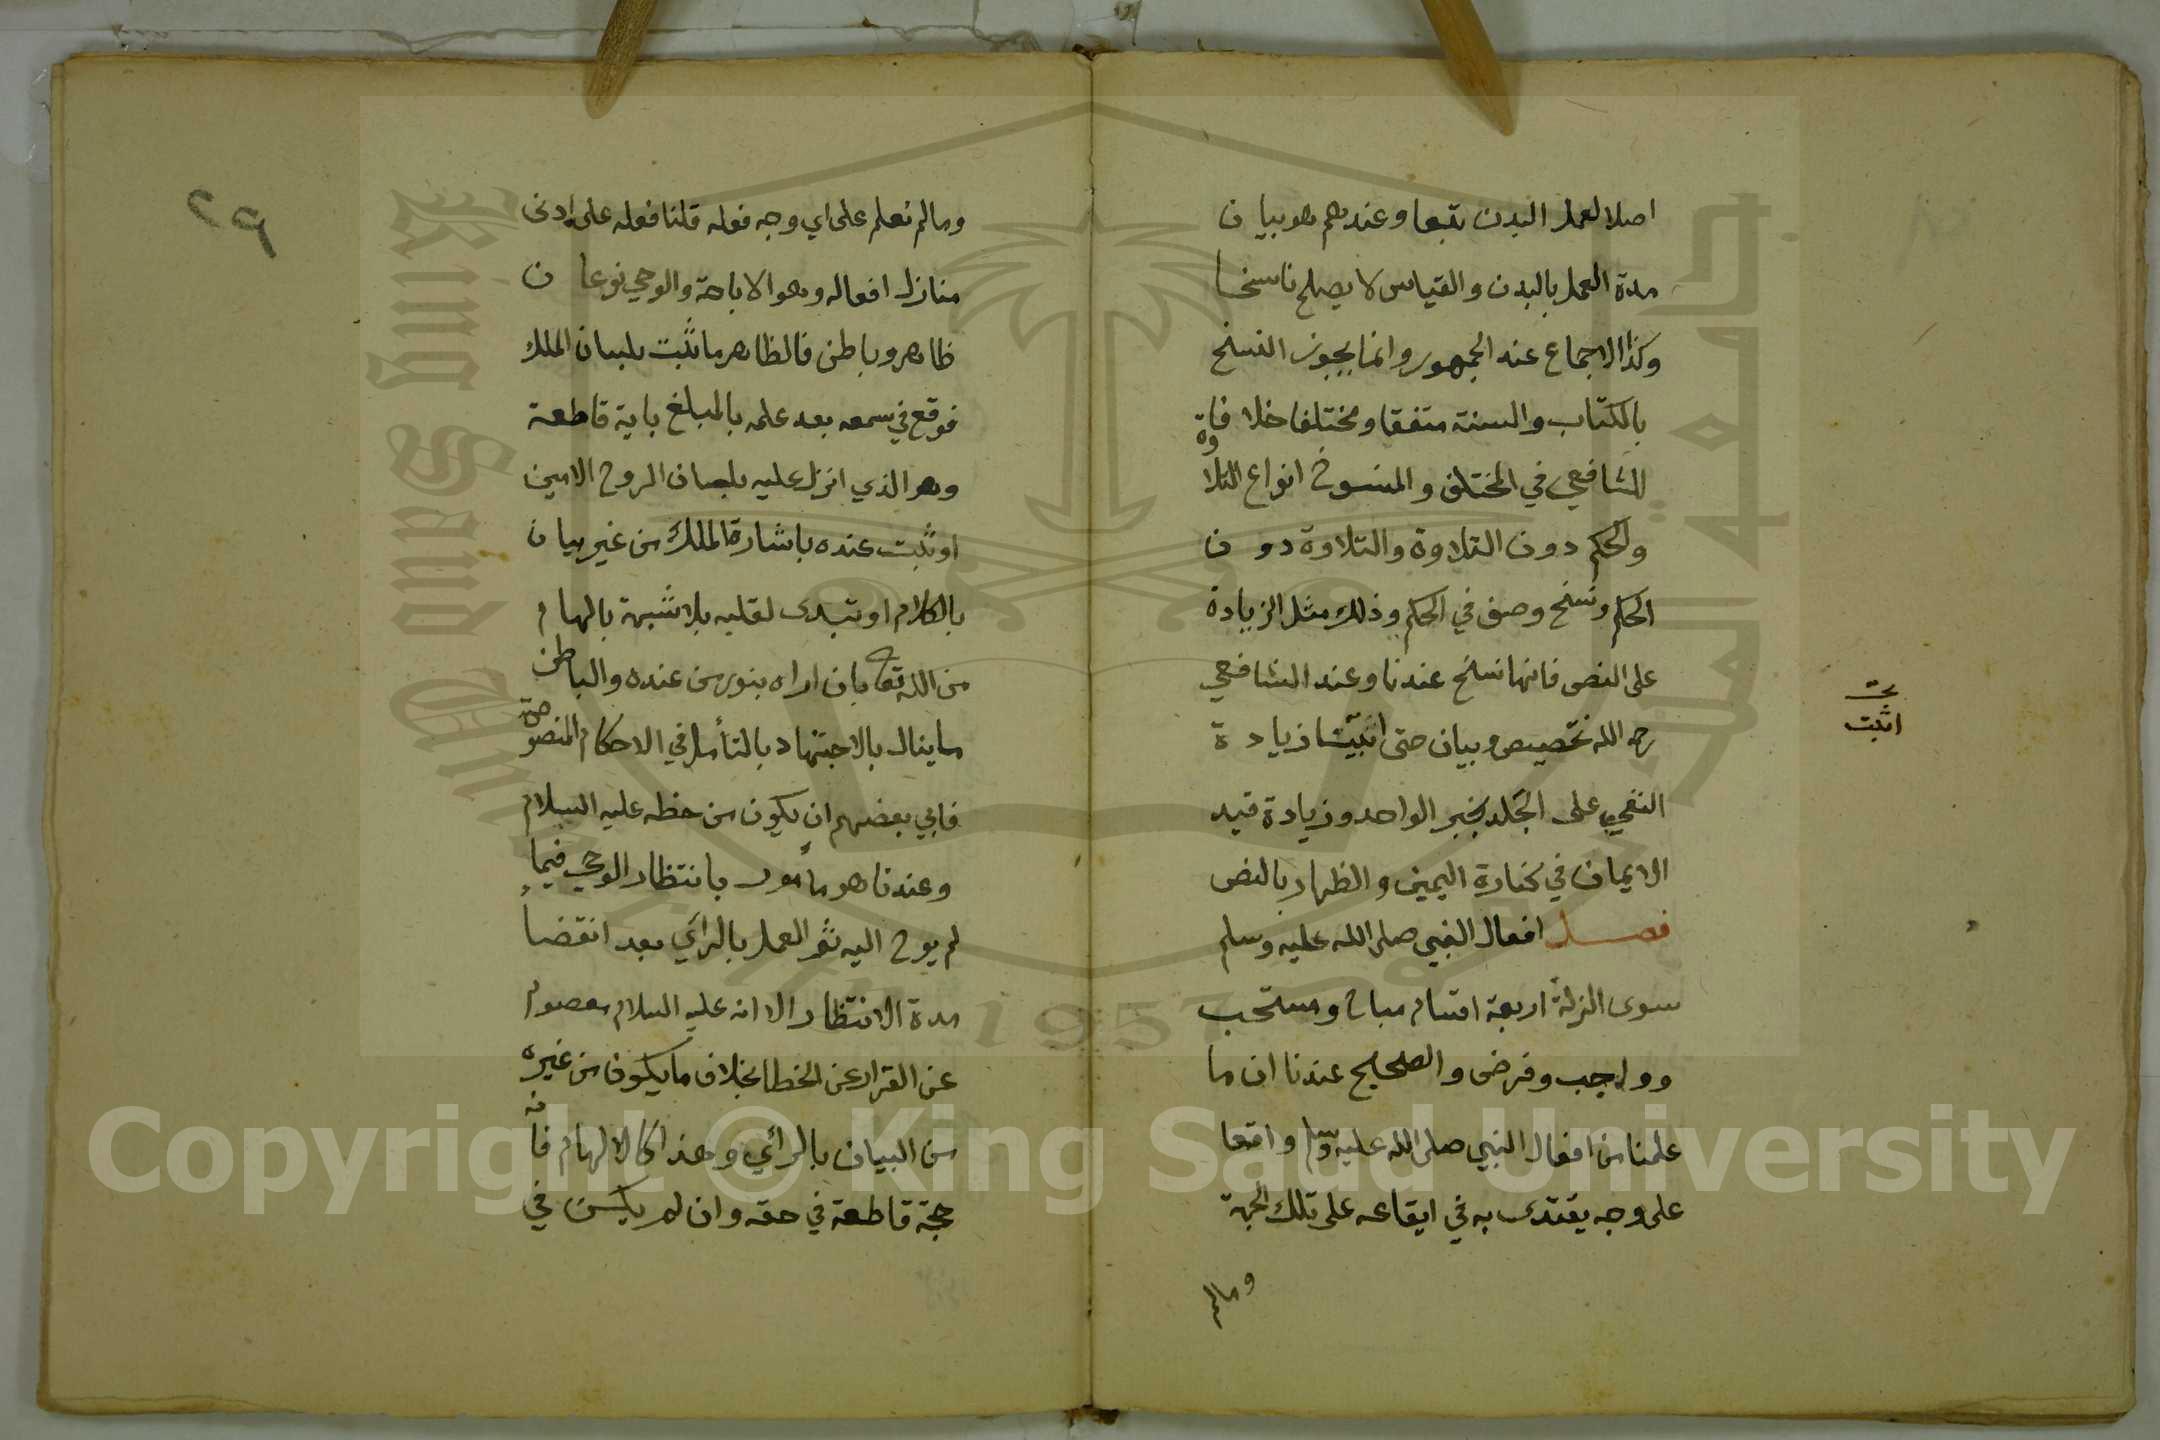 اصلا لعمل البدن تبعا وعندهم هو بيان
مدة العمل بالبدن والقياس لا يصلح ناسخا
وكذا الاجماع عند الجمهور وانما يجوز النسخ
بالكتاب والسنة متفقا ومختلفا خلافا
للشافعي في المختلف والمنسوخ انواع التلاوة
والحكم دون التلاوة والتلاوة دون
الحكم ونسخ وصف في الحكم وذلك مثل الزيادة
على النص فانها نسخ عندنا وعند الشافعي
رحمه الله تخصيص وبيان حتى اثبتنا زيادة
اثبت
النفي على الجلد بخبر الواحد وزيادة قيد
الايمان في كفارة اليمين والظهار بالنص
فصل افعال النبي صلى الله عليه وسلم
سوى الزلة اربعة اقسام مباح ومستحب
وواجب وفرض والصحيح عندنا ان ما
علمنا من افعال النبي صلى الله عليه وسلم واقعا
على وجه يقتدى به في ايقاعه على تلك الجهة
ومالم
٢٩
ومالم نعلم على اي وجه فعله قلنا فعله على ادنى
منازل افعاله وهو الاباحة والوحي نوعان
ظاهر وباطن فالظاهر ما ثبت بلسان الملك
فوقع في سمعه بعد علمه بالمبلغ باية قاطعة
وهو الذي انزل عليه بلسان الروح الامين
او ثبت عنده باشارة الملك من غير بيان
بالكلام او تبدى لقلبه بلا شبهة بالهام
من الله تعالى بان اراه بنور من عنده والباطن
ما ينال بالاجتهاد بالتأمل في الاحكام المنصوصة
فابي بعضهم ان يكون من حظه عليه السلام
وعندنا هو مأمور بانتظار الوحي فيما
لم يوح اليه ثم العمل بالرأي بعد انقضاء
مدة الانتظار الا انه عليه السلام معصوم
عن القرار عن الخطا بخلاف ما يكون من غيره
من البيان بالرأي وهذا كالالهام فانه
حجة قاطعة في حقه وان لم يكن في
Copyright © King Saud University
1957